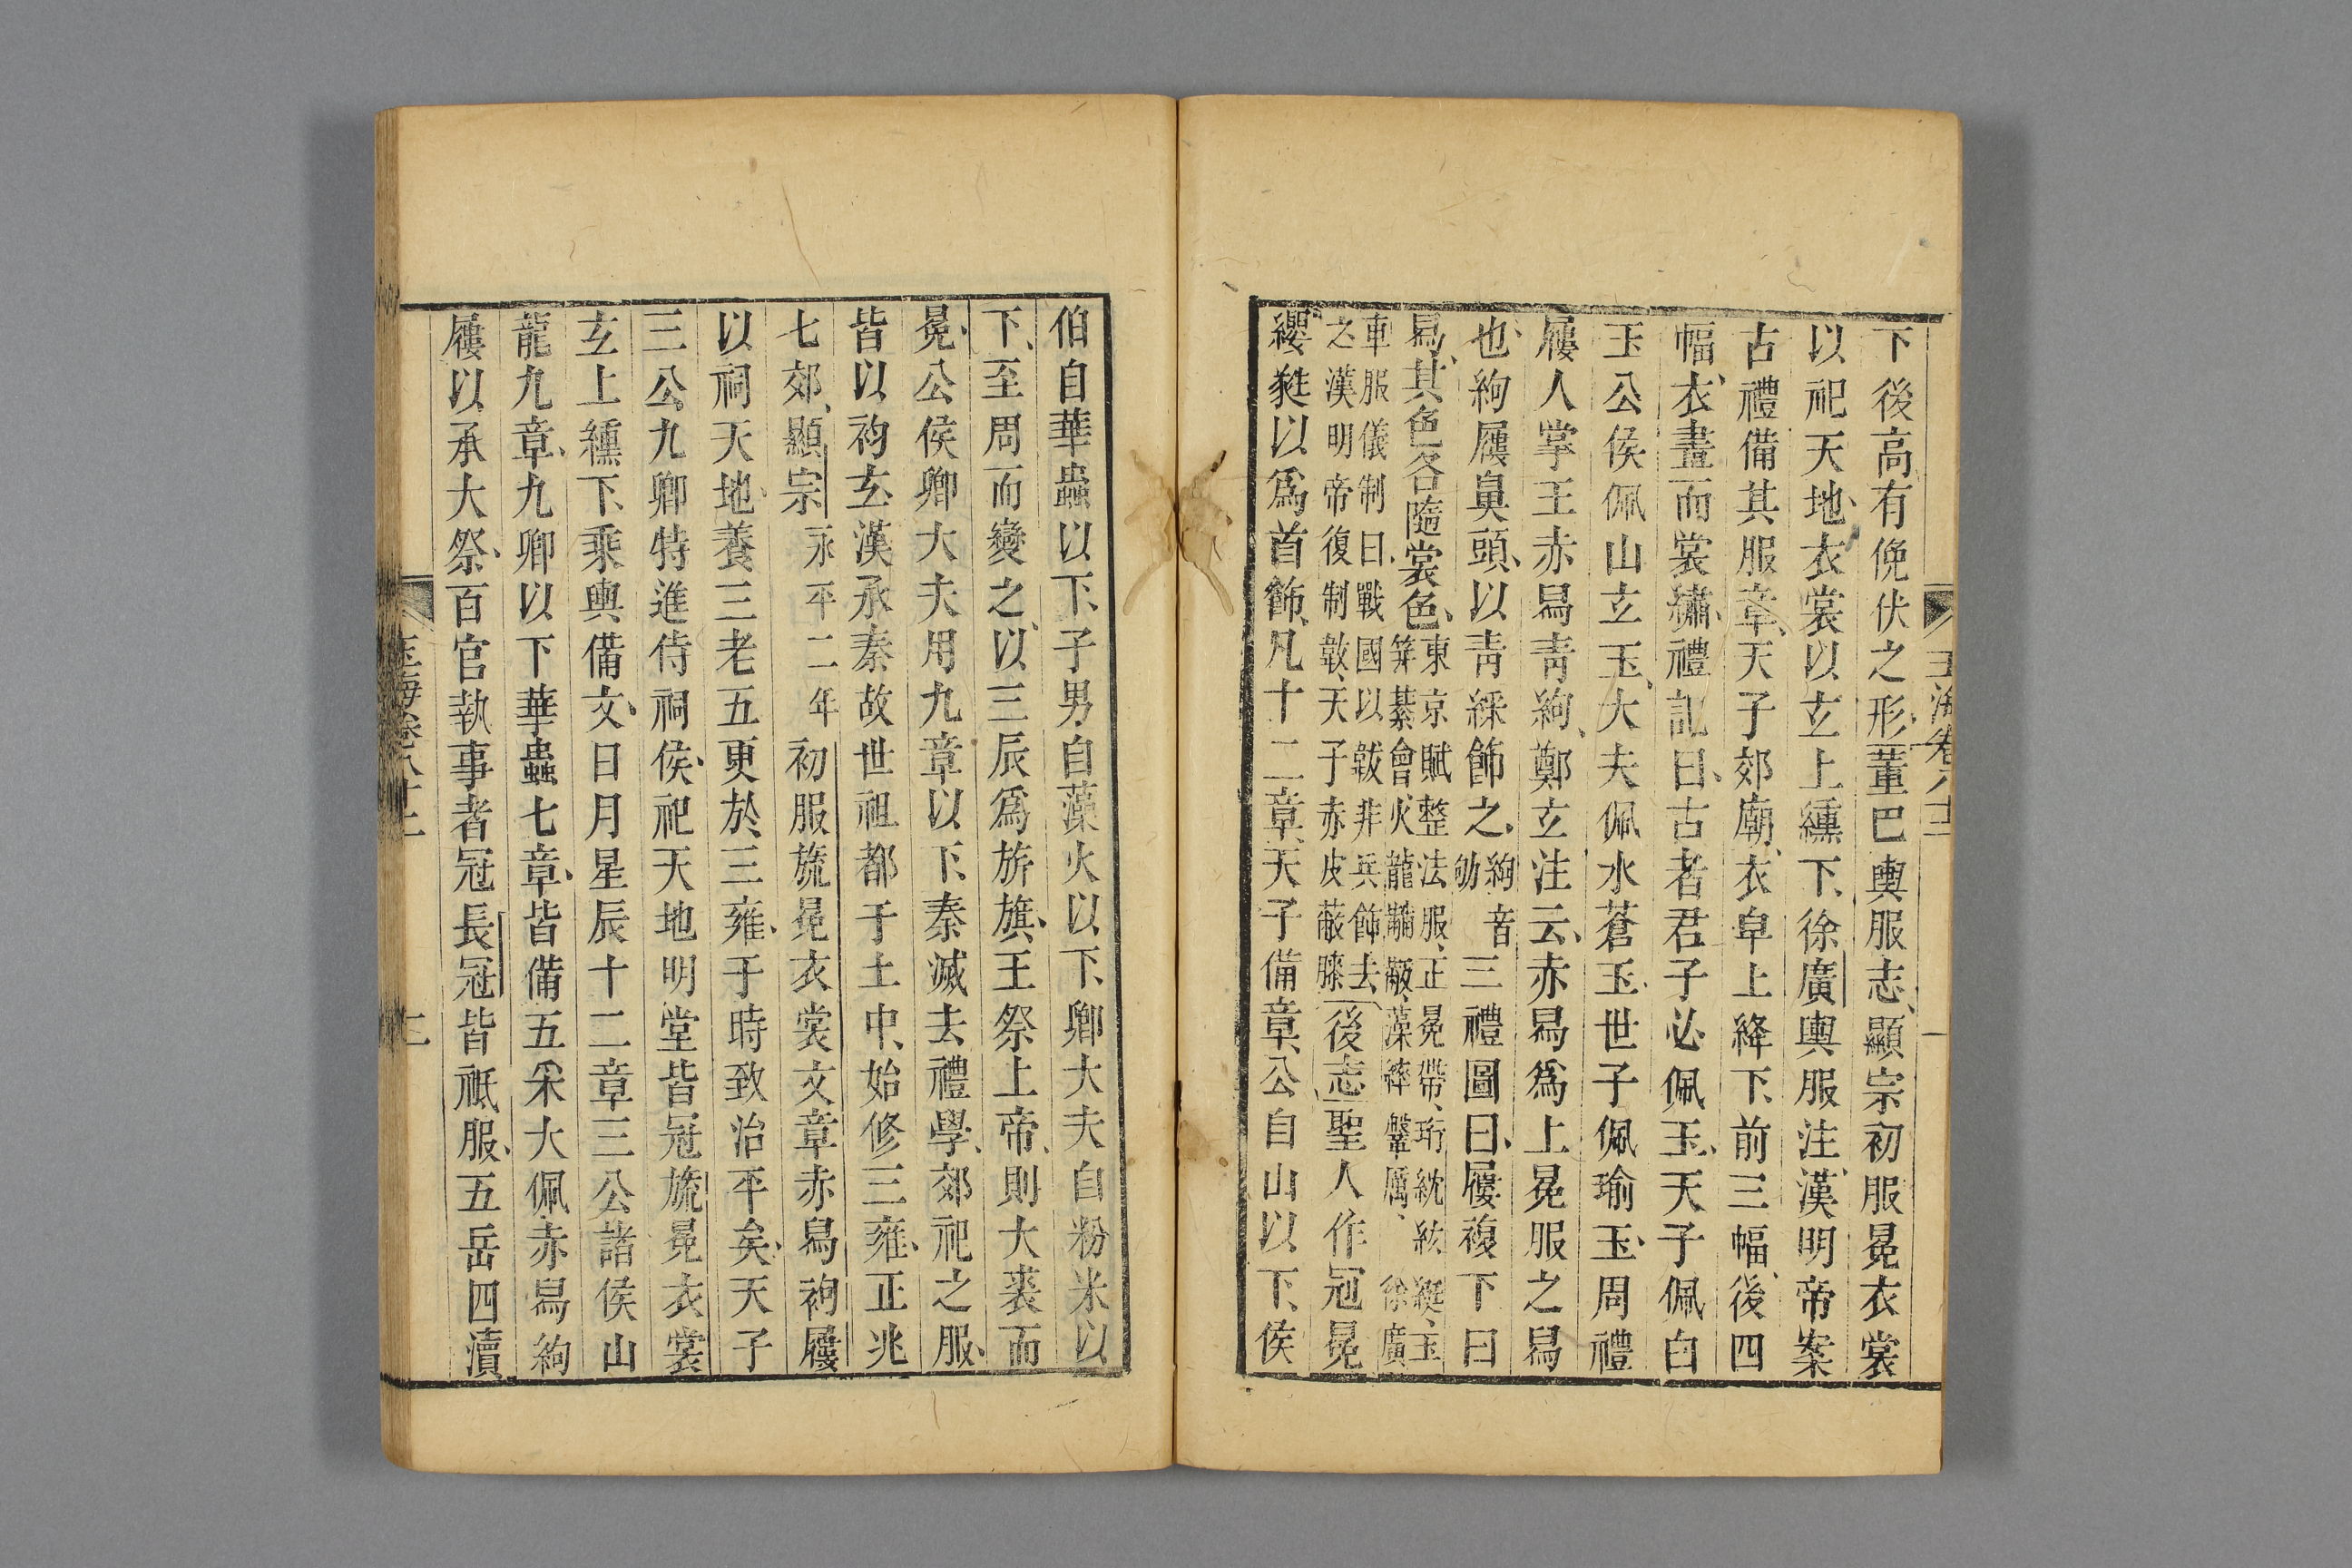 下後高有俛伏之形董巴輿服志顯宗初服冕衣裳
以祀天地衣裳以玄上纁下徐廣輿服注漢明帝案
古禮備其服章天子郊廟衣皁上絳下前三幅後四
幅衣畫而裳繡禮記曰古者君子必佩玉天子佩白
玉公侯佩山玄玉大夫佩水蒼玉世子佩瑜玉周禮
屨人掌王赤舄靑絇鄭玄注云赤舄爲上冕服之舄
也絇屨鼻頭以靑綵飾之絇音劬三禮圖曰屨複下曰
舄其色各隨裳色東京賦整法服正冕帶珩紞紘綖玉
笄綦會火龍黼黻藻繂鞶厲徐廣
車服儀制曰戰國以韍非兵飾去
之漢明帝復制韍天子赤皮蔽膝後志聖人作冠冕
纓蕤以爲首飾凡十二章天子備章公自山以下侯
伯自華蟲以下子男自藻火以下卿大夫自粉米以
下至周而變之以三辰爲旂旗王祭上帝則大裘而
冕公侯卿大夫用九章以下秦滅去禮學郊祀之服
皆以袀玄漢承秦故世祖都于土中始修三雍正兆
七郊顯宗永平二年初服旒冕衣裳文章赤舄絇屨
以祠天地養三老五更於三雍于時致治平矣天子
三公九卿特進侍祠侯祀天地明堂皆冠旒冕衣裳
玄上纁下乘輿備文日月星辰十二章三公諸侯山
龍九章九卿以下華蟲七章皆備五采大佩赤舄絇
屨以承大祭百官執事者冠長冠皆祗服五岳四瀆
玉海卷八十二